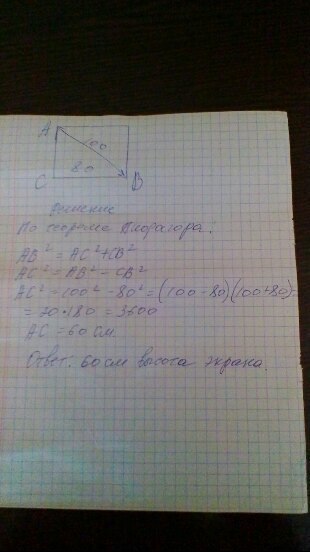 A
100
80
C B
Решение
По теореме Пифагора:
AB² = AC² + CB²
AC² = AB² - CB²
AC² = 100² - 80² = (100 - 80)(100+80) =
= 20 · 180 = 3600
AC = 60 см
Ответ: 60 см высота экрана.